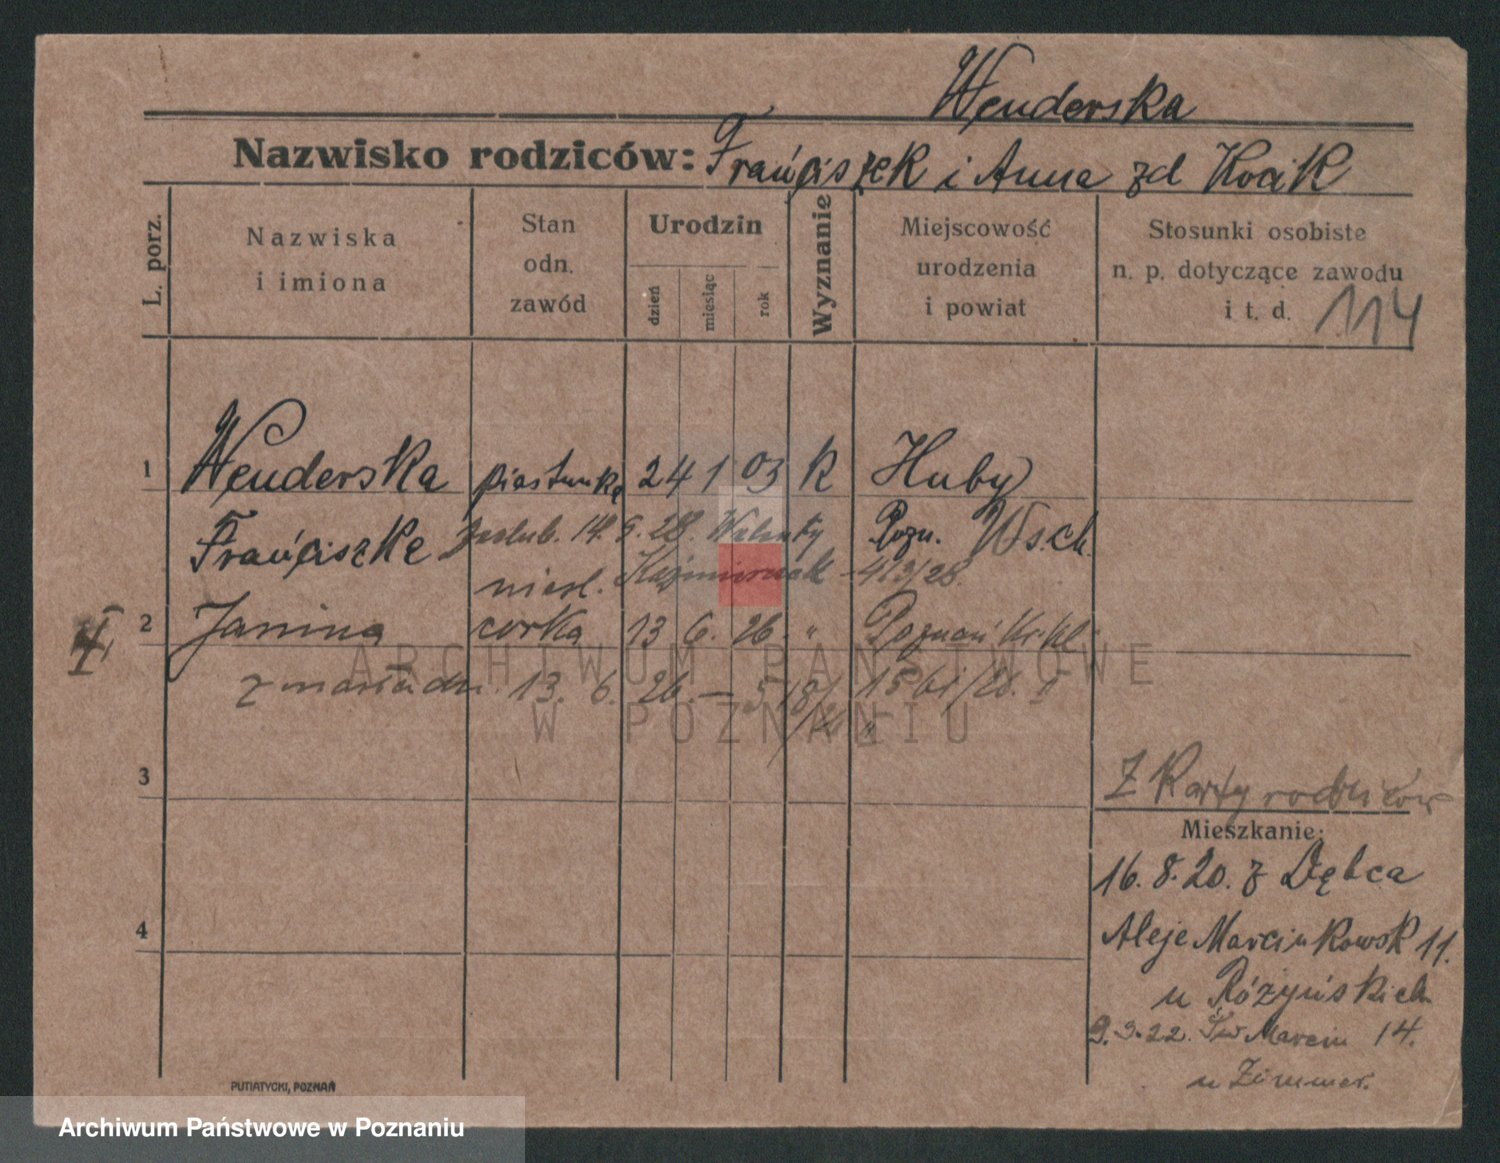 Wenderska
Nazwisko rodziców: Franciszek i Anna zd Kocik
L. porz.
Nazwiska
i imiona
Stan
odn.
zawód
Urodzin
dzień
miesiąc
rok
Wyznanie
Miejscowość
urodzenia
i powiat
Stosunki osobiste
n. p. dotyczące zawodu
i t. d. 114
1 Wenderska piastunka 24 1 03 k Huby
Franciszka zaślub. 14. 9. 28. Walenty Pozn. Wsch.
nieśl. Kaźmierczak - 413/28
2 Janina córka 13 6. 26. " Poznań
zmarła dn. 13. 6. 26 —
ARCHIWUM PAŃSTWOWE
W POZNANIU
3
Z karty rodziców
Mieszkanie:
16. 8. 20. z Dębca
4
Aleje Marcinkowsk 11.
u Różyńskich
9. 3. 22. Św Marcin 14.
u Zimmer.
PUTIATYCKI, POZNAŃ
Archiwum Państwowe w Poznaniu